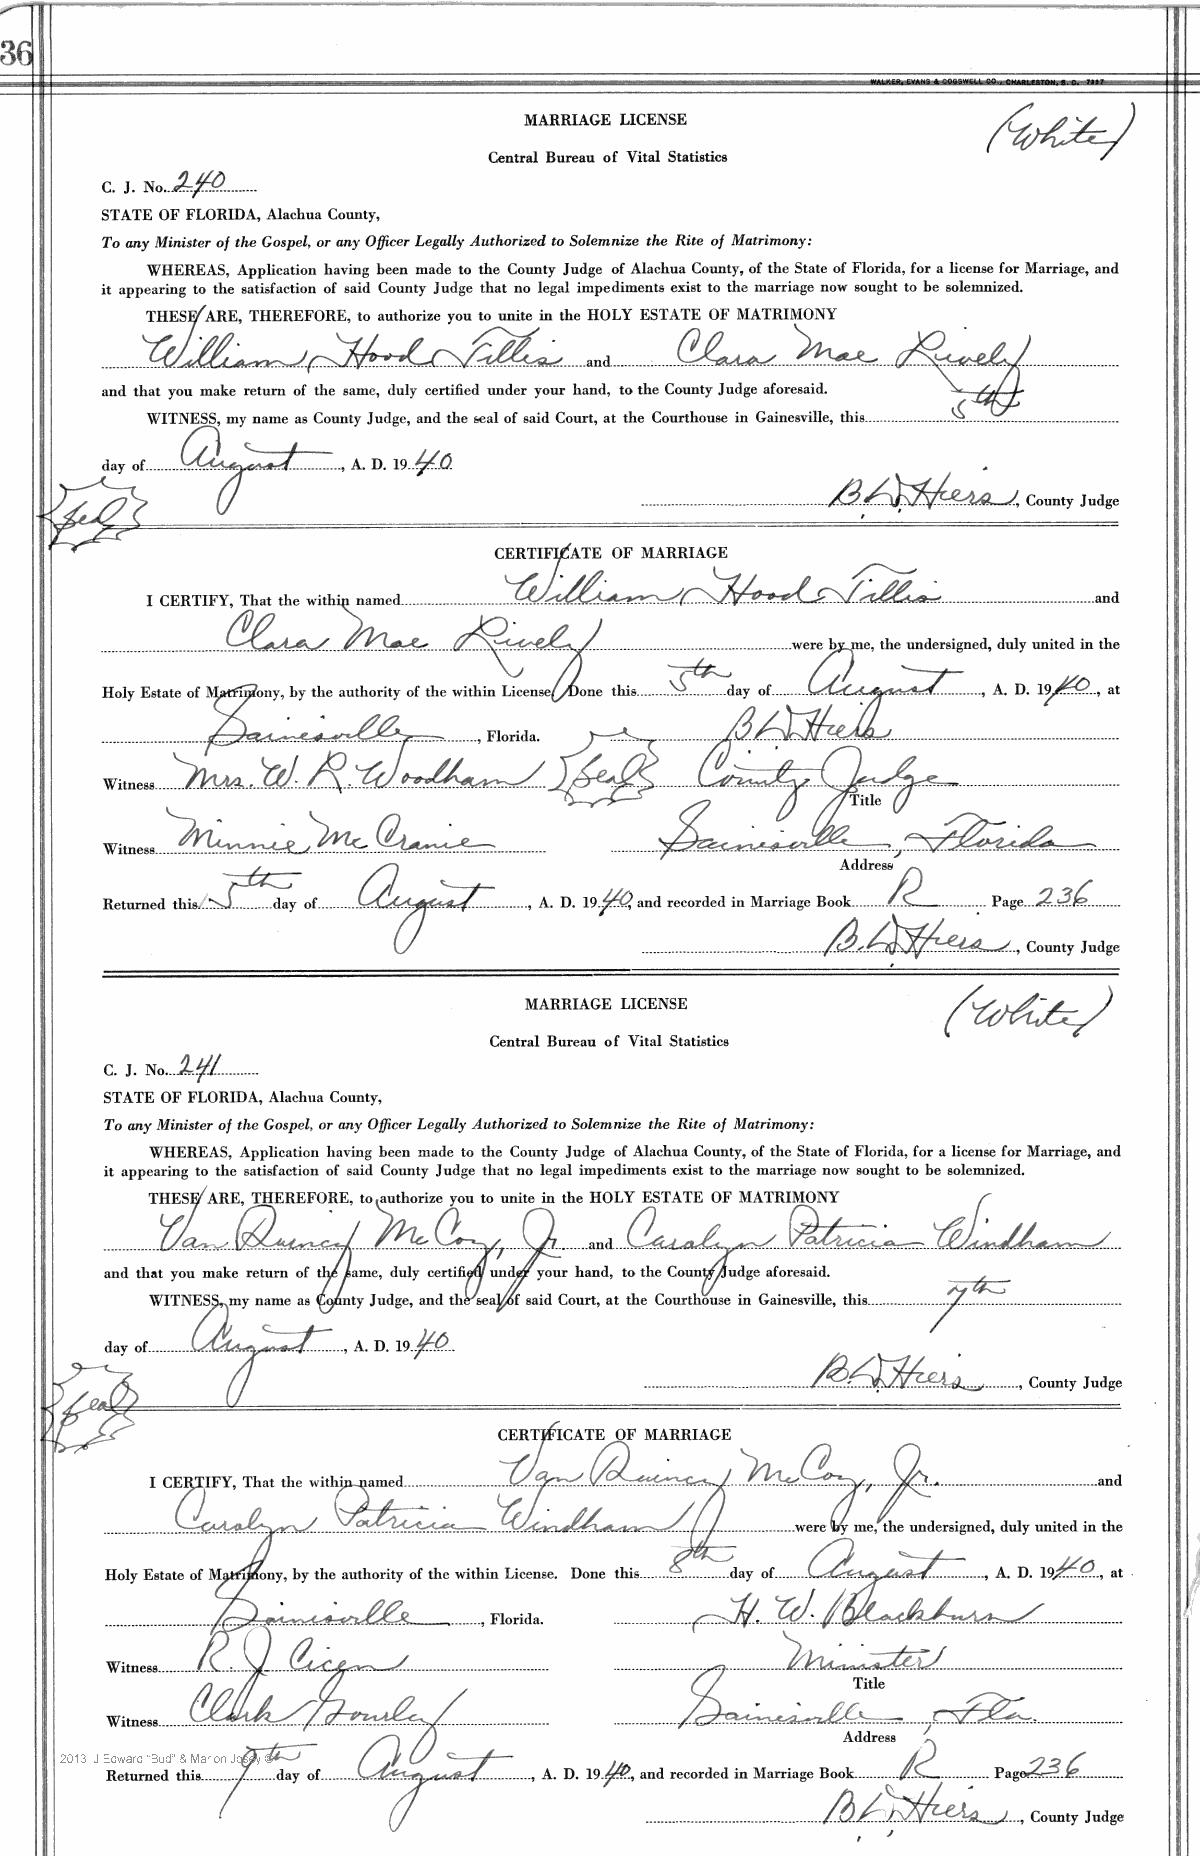 36
WALKER, EVANS & COGSWELL CO., CHARLESTON, S. C. 7227
MARRIAGE LICENSE
(White)
Central Bureau of Vital Statistics
C. J. No. 240
STATE OF FLORIDA, Alachua County,
To any Minister of the Gospel, or any Officer Legally Authorized to Solemnize the Rite of Matrimony:
WHEREAS, Application having been made to the County Judge of Alachua County, of the State of Florida, for a license for Marriage, and
it appearing to the satisfaction of said County Judge that no legal impediments exist to the marriage now sought to be solemnized.
THESE ARE, THEREFORE, to authorize you to unite in the HOLY ESTATE OF MATRIMONY
William Hood Tillis and Clara Mae Lively
and that you make return of the same, duly certified under your hand, to the County Judge aforesaid.
WITNESS, my name as County Judge, and the seal of said Court, at the Courthouse in Gainesville, this 5th
day of August, A. D. 1940
Seal
B. D. Hiers, County Judge
CERTIFICATE OF MARRIAGE
I CERTIFY, That the within named William Hood Tillis and
Clara Mae Lively were by me, the undersigned, duly united in the
Holy Estate of Matrimony, by the authority of the within License. Done this 5th day of August, A. D. 1940, at
Gainesville, Florida. B D Hiers
Witness Mrs. W. R. Woodham Seal County Judge
Title
Witness Minnie McCranie Gainesville, Florida
Address
Returned this 5th day of August, A. D. 1940, and recorded in Marriage Book R Page 236
B. D. Hiers, County Judge
MARRIAGE LICENSE
(White)
Central Bureau of Vital Statistics
C. J. No. 241
STATE OF FLORIDA, Alachua County,
To any Minister of the Gospel, or any Officer Legally Authorized to Solemnize the Rite of Matrimony:
WHEREAS, Application having been made to the County Judge of Alachua County, of the State of Florida, for a license for Marriage, and
it appearing to the satisfaction of said County Judge that no legal impediments exist to the marriage now sought to be solemnized.
THESE ARE, THEREFORE, to authorize you to unite in the HOLY ESTATE OF MATRIMONY
Van Quincy McCoy, Jr. and Carolyn Patricia Windham
and that you make return of the same, duly certified under your hand, to the County Judge aforesaid.
WITNESS, my name as County Judge, and the seal of said Court, at the Courthouse in Gainesville, this 7th
day of August, A. D. 1940
Seal
B. D. Hiers, County Judge
CERTIFICATE OF MARRIAGE
I CERTIFY, That the within named Van Quincy McCoy, Jr. and
Carolyn Patricia Windham were by me, the undersigned, duly united in the
Holy Estate of Matrimony, by the authority of the within License. Done this 8th day of August, A. D. 1940, at
Gainesville, Florida. H. W. Blackburn
Witness R. J. Cicen Minister
Title
Witness Clark Gourley Gainesville, Fla.
Address
2013 J Edward "Bud" & Marion Josey ©
Returned this 9th day of August, A. D. 1940, and recorded in Marriage Book R Page 236
B. D. Hiers, County Judge